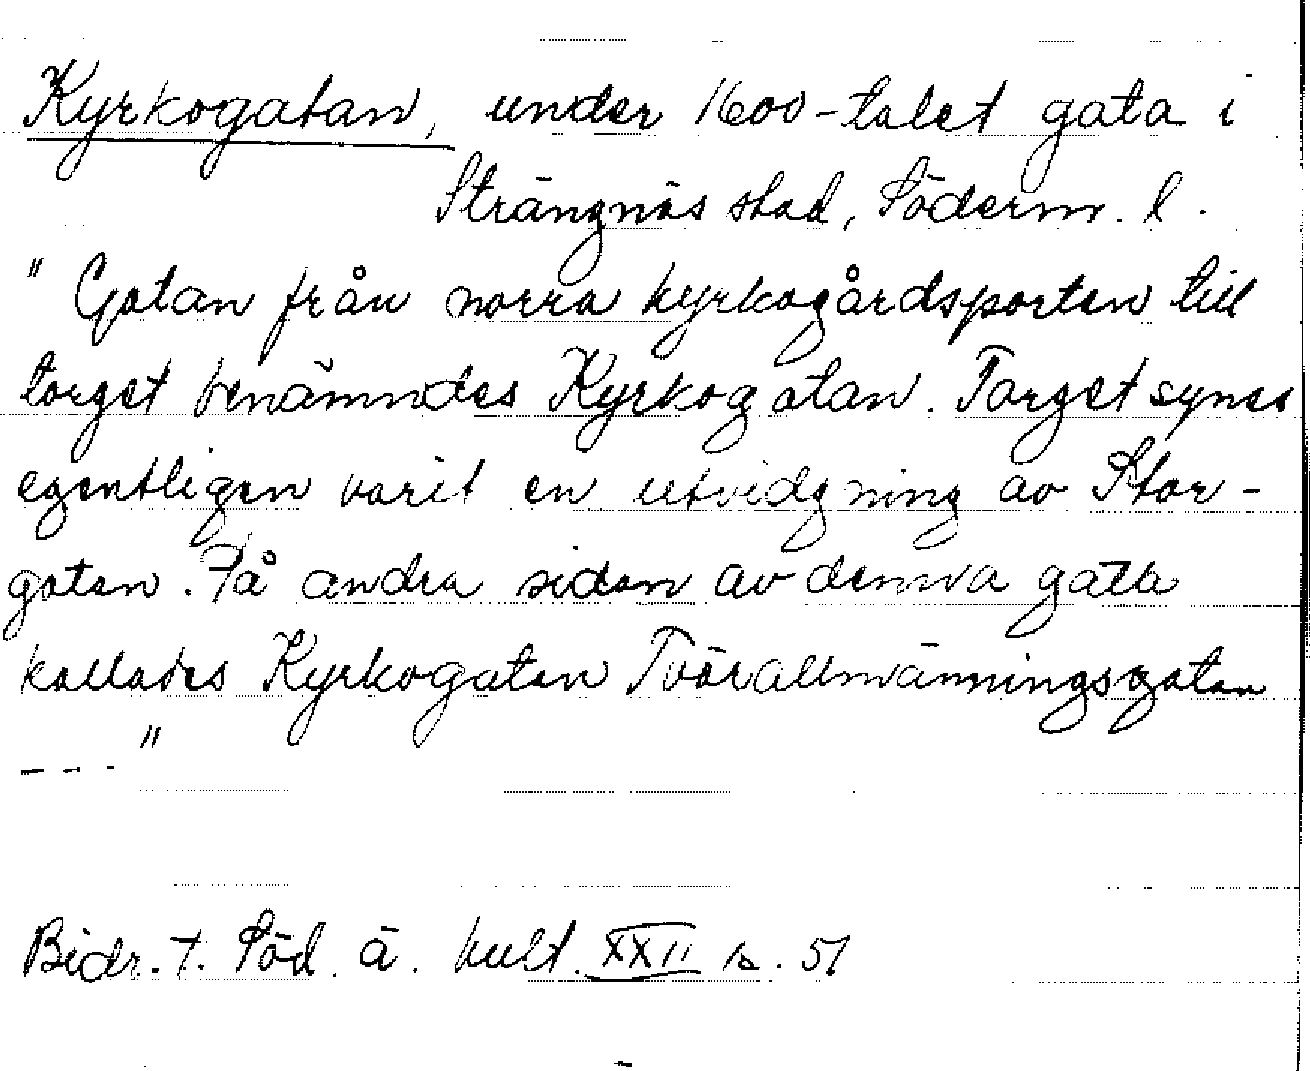 Kyrkogatan, under 1600-talet gata i
Strängnäs stad, Söderm. l.
" Gatan från norra kyrkogårdsporten till
torget benämndes Kyrkogatan. Torget synes
egentligen varit en utvidgning av Stor-
gatan. På andra sidan av denna gata
kallades Kyrkogatan Tvärallmänningsgatan
---"
Bidr. t. Söd. ä. kult. XXII s. 51